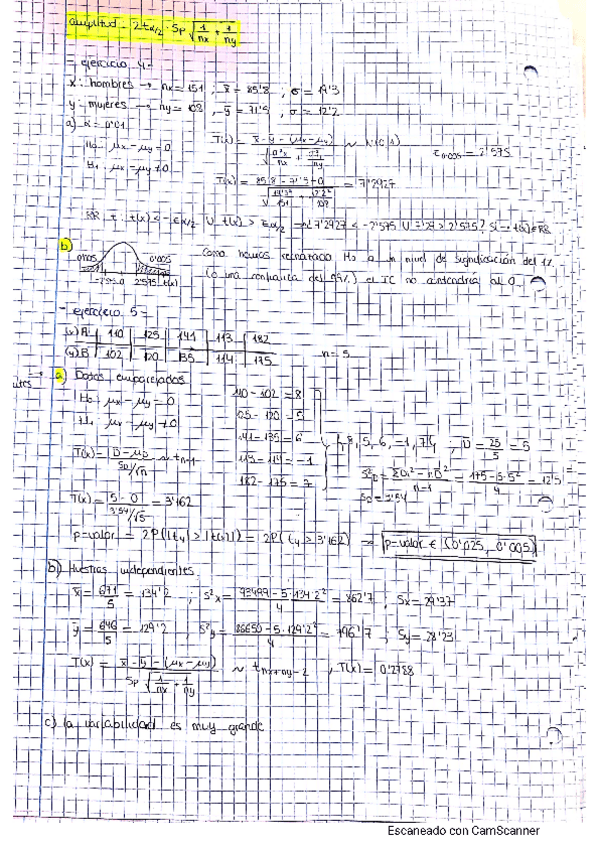 amplitud = 2tα/2 · Sp √(1/nx + 1/ny)
- ejercicio 4 -
x: hombres → nx = 151 ; x̄ = 85'8 , σ =
y: mujeres → ny = 108 , ȳ = 71'5 , σ = 12'2
a) α = 0'01
H0: μx - μy = 0
H1: μx - μy ≠ 0
T(x) = x̄ - ȳ - (μx - μy) / √(σ²x/nx + σ²y/ny) ~ N(0,1)
z0'005 = 2'575
T(x) = 85'8 - 71'5 + 0 / = 7'2927
RR = T(x) < - zα/2 U T(x) > zα/2 → 7'2927 < -2'575 U 7'29 > 2'575? Sí → t(x) ∈ RR
b) 0'005 0'005
-2'575 0 2'575 t(x)
Como hemos rechazado H0 a un nivel de significación del 1%
(o una confianza del 99%) el IC no contendría al 0.
- ejercicio 5 -
(x) A 110 125 141 113 182
(y) B 102 120 135 114 175
n = 5
a) Datos emparejados
H0: μx - μy = 0
H1: μx - μy ≠ 0
110 - 102 = 8
125 - 120 = 5
141 - 135 = 6
113 - 114 = -1
182 - 175 = 7
8, 5, 6, -1, 7 ; D̄ = 25/5 = 5
T(x) = D̄ - μD / SD/√n ~ tn-1
S²D = ΣDi² - nD̄² / n-1 = 175 - 5·5² / 4 = 12'5
SD = 3'54
T(x) = 5 - 0 / 3'54/√5 = 3'162
p-valor = 2P(|t4| > |t(x)|) = 2P(t4 > 3'162) → p-valor ∈ (0'025, 0'005)
b) Muestras independientes
x̄ = 671/5 = 134'2 ; S²x = 93499 - 5·134'2² / 4 = 862'7 ; Sx = 29'37
ȳ = 646/5 = 129'2 ; S²y = 86650 - 5·129'2² / 4 = 796'7 ; Sy = 28'23
T(x) = x̄ - ȳ - (μx - μy) / Sp √(1/nx + 1/ny) ~ tnx+ny-2 , T(x) = 0'2788
c) la variabilidad es muy grande
Escaneado con CamScanner